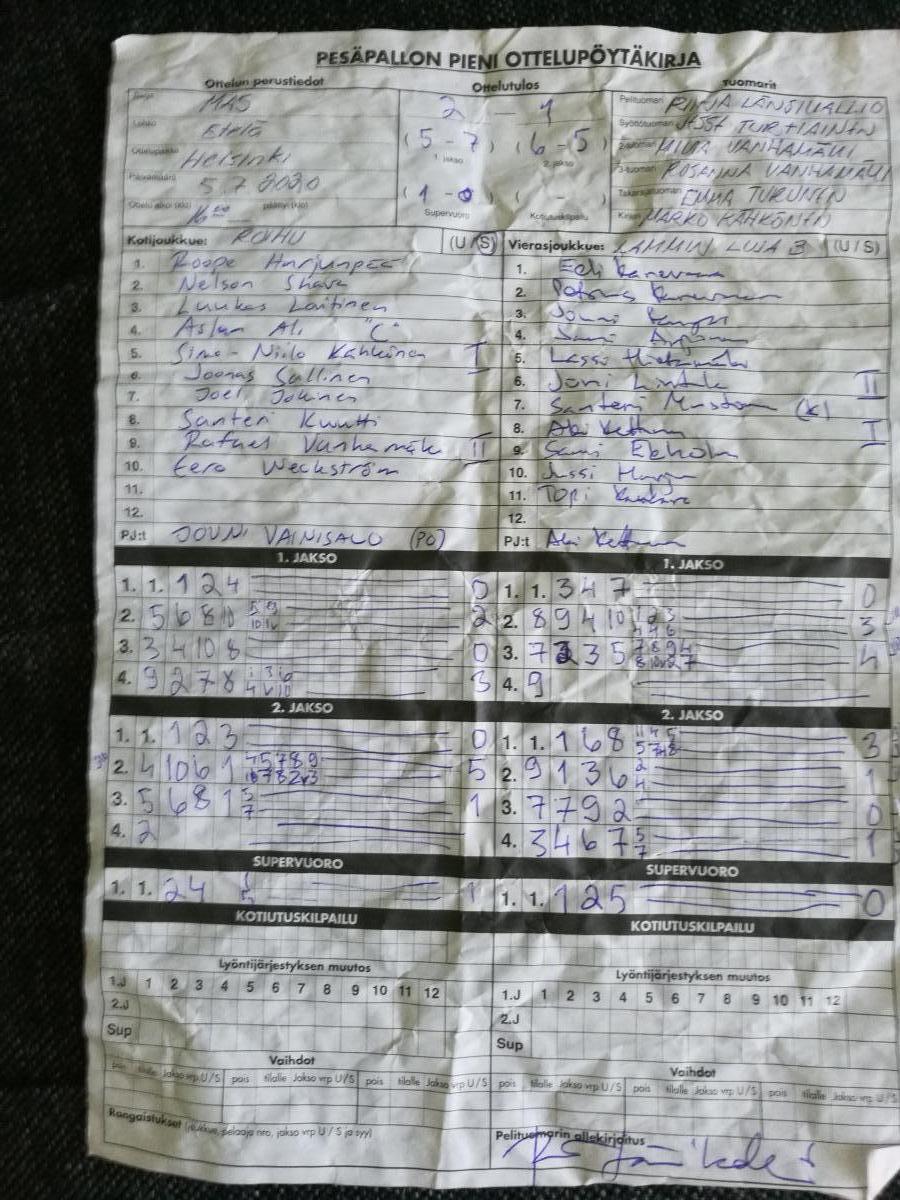 PESÄPALLON PIENI OTTELUPÖYTÄKIRJA
Ottelun perustiedot
Sarja MAS
Lohko Etelä
Ottelupaikka Helsinki
Päivämäärä 5.7 2020
Ottelu alkoi (klo) 16:00 päättyi (klo)
Ottelutulos
2 — 1
(5 - 7) (6 - 5)
1. jakso 2. jakso
(1 - 0) ( - )
Supervuoro Kotiutuskilpailu
Tuomarit
Pelituomari RINJA LÄNSIVALLIO
Syöttötuomari JUSSI TURTIAINEN
2-tuomari MIIVA VANHAMÄKI
3-tuomari ROSANNA VANHAMÄKI
Takarajatuomari EMMA TURUNEN
Kirjuri MARKO KÄHKÖNEN
Kotijoukkue: ROIHU (U / S)
1. Roope Harjunpää
2. Nelson Shava
3. Luukas Laitinen
4. Aslan Ali "C"
5. Simo-Niilo Kähkönen I
6. Joonas Sallinen
7. Joel Jokinen
8. Santeri Kuutti
9. Rafael Vanhamäki II
10. Eero Weckström
11.
12.
PJ:t JOUNI VAINISALO (PO)
Vierasjoukkue: LAMMIN LUJA B (U / S)
1. Eeli
2.
3. Jouni
4. Sami
5. Lassi
6. Joni II
7. Santeri (K)
8. Aki Kettunen I
9. Sami Ekholm
10. Jussi
11. Topi
12.
PJ:t Aki Kettunen
1. JAKSO
1. 1. 1 2 4 0
2. 5 6 8 10 5 9 2
3. 3 4 10 8 0
4. 9 2 7 8 3
1. JAKSO
1. 1. 3 4 7 0
2. 8 9 4 10 1 2 3 3
3. 7 3 5 4
4. 9
2. JAKSO
1. 1. 1 2 3 0
2. 4 10 6 1 4 5 7 8 9 5
3. 5 6 8 1 5 7 1
4. 2
2. JAKSO
1. 1. 1 6 8 3
2. 9 1 3 6 2 4 1
3. 7 7 9 2 0
4. 3 4 6 7 5 7 1
SUPERVUORO
1. 1. 2 4 1
SUPERVUORO
1. 1. 1 2 5 0
KOTIUTUSKILPAILU
KOTIUTUSKILPAILU
Lyöntijärjestyksen muutos
1.J 1 2 3 4 5 6 7 8 9 10 11 12
2.J
Sup
Lyöntijärjestyksen muutos
1.J 1 2 3 4 5 6 7 8 9 10 11 12
2.J
Sup
Vaihdot
pois tilalle Jakso vrp U / S pois tilalle Jakso vrp U / S pois tilalle Jakso vrp U / S
Vaihdot
pois tilalle Jakso vrp U / S pois tilalle Jakso vrp U / S pois tilalle Jakso vrp U / S
Rangaistukset (joukkue, pelaaja nro, jakso vrp U / S ja syy)
Pelituomarin allekirjoitus